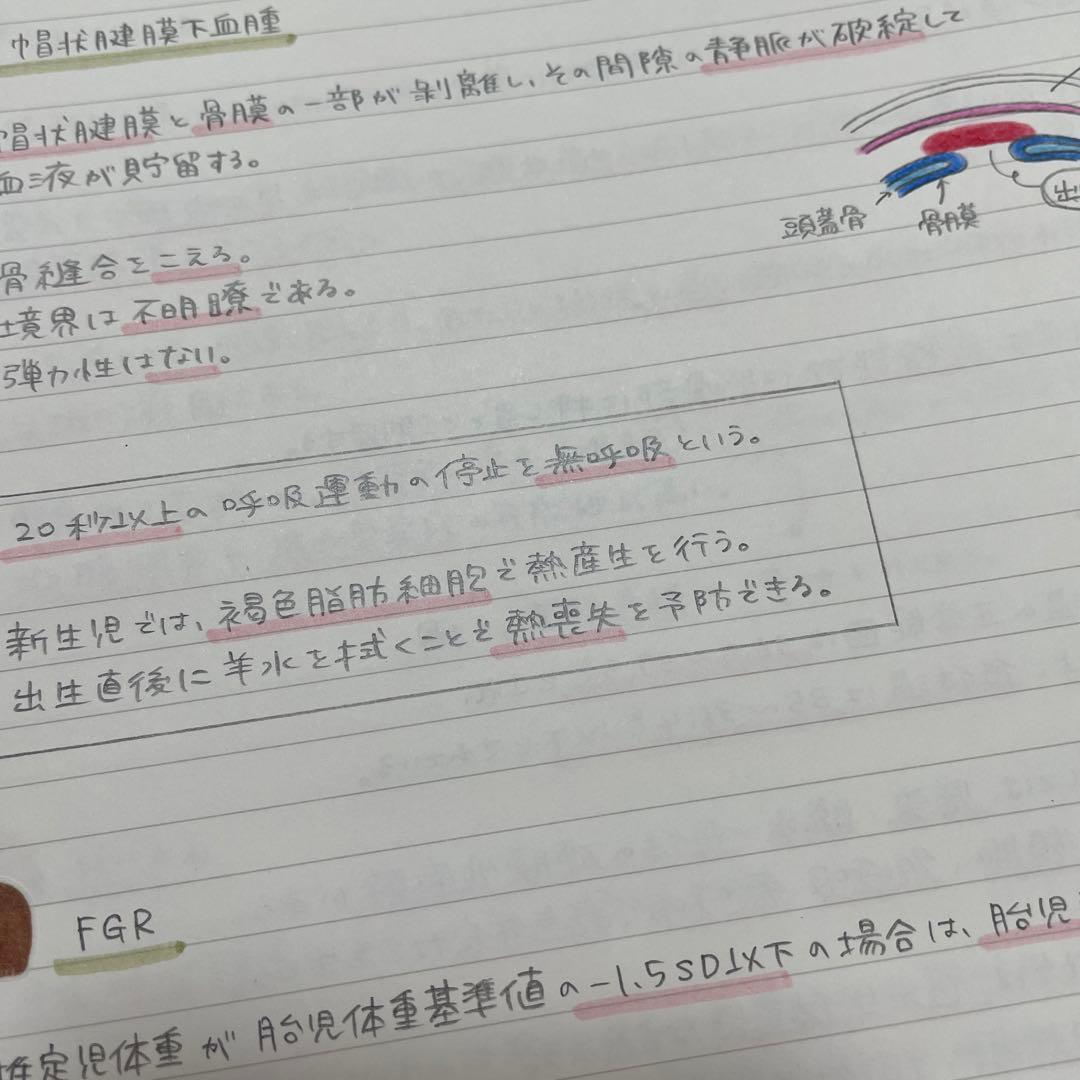 帽状腱膜下血腫
帽状腱膜と骨膜の一部が剥離し、その間隙の静脈が破綻して
血液が貯留する。
頭蓋骨
骨膜
出
骨縫合をこえる。
境界は不明瞭である。
弾力性はない。
20秒以上の呼吸運動の停止を無呼吸という。
新生児では、褐色脂肪細胞で熱産生を行う。
出生直後に羊水を拭くことで熱喪失を予防できる。
FGR
推定児体重が胎児体重基準値の-1.5SD以下の場合は、胎児